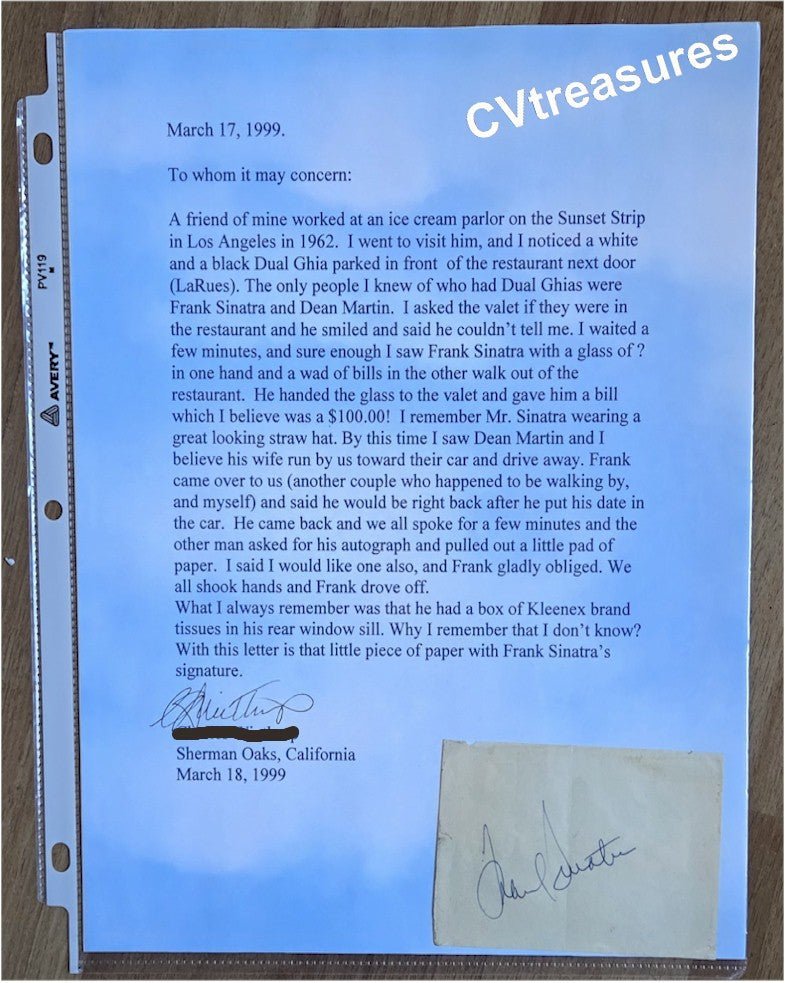 CVtreasures
March 17, 1999.
To whom it may concern:
A friend of mine worked at an ice cream parlor on the Sunset Strip
in Los Angeles in 1962.  I went to visit him, and I noticed a white
and a black Dual Ghia parked in front  of the restaurant next door
(LaRues). The only people I knew of who had Dual Ghias were
Frank Sinatra and Dean Martin.  I asked the valet if they were in
the restaurant and he smiled and said he couldn't tell me. I waited a
few minutes, and sure enough I saw Frank Sinatra with a glass of ?
in one hand and a wad of bills in the other walk out of the
restaurant.  He handed the glass to the valet and gave him a bill
which I believe was a $100.00!  I remember Mr. Sinatra wearing a
great looking straw hat. By this time I saw Dean Martin and I
believe his wife run by us toward their car and drive away. Frank
came over to us (another couple who happened to be walking by,
and myself) and said he would be right back after he put his date in
the car.  He came back and we all spoke for a few minutes and the
other man asked for his autograph and pulled out a little pad of
paper.  I said I would like one also, and Frank gladly obliged. We
all shook hands and Frank drove off.
What I always remember was that he had a box of Kleenex brand
tissues in his rear window sill. Why I remember that I don't know?
With this letter is that little piece of paper with Frank Sinatra's
signature.
Sherman Oaks, California
March 18, 1999
Frank Sinatra
PV119
AVERY™